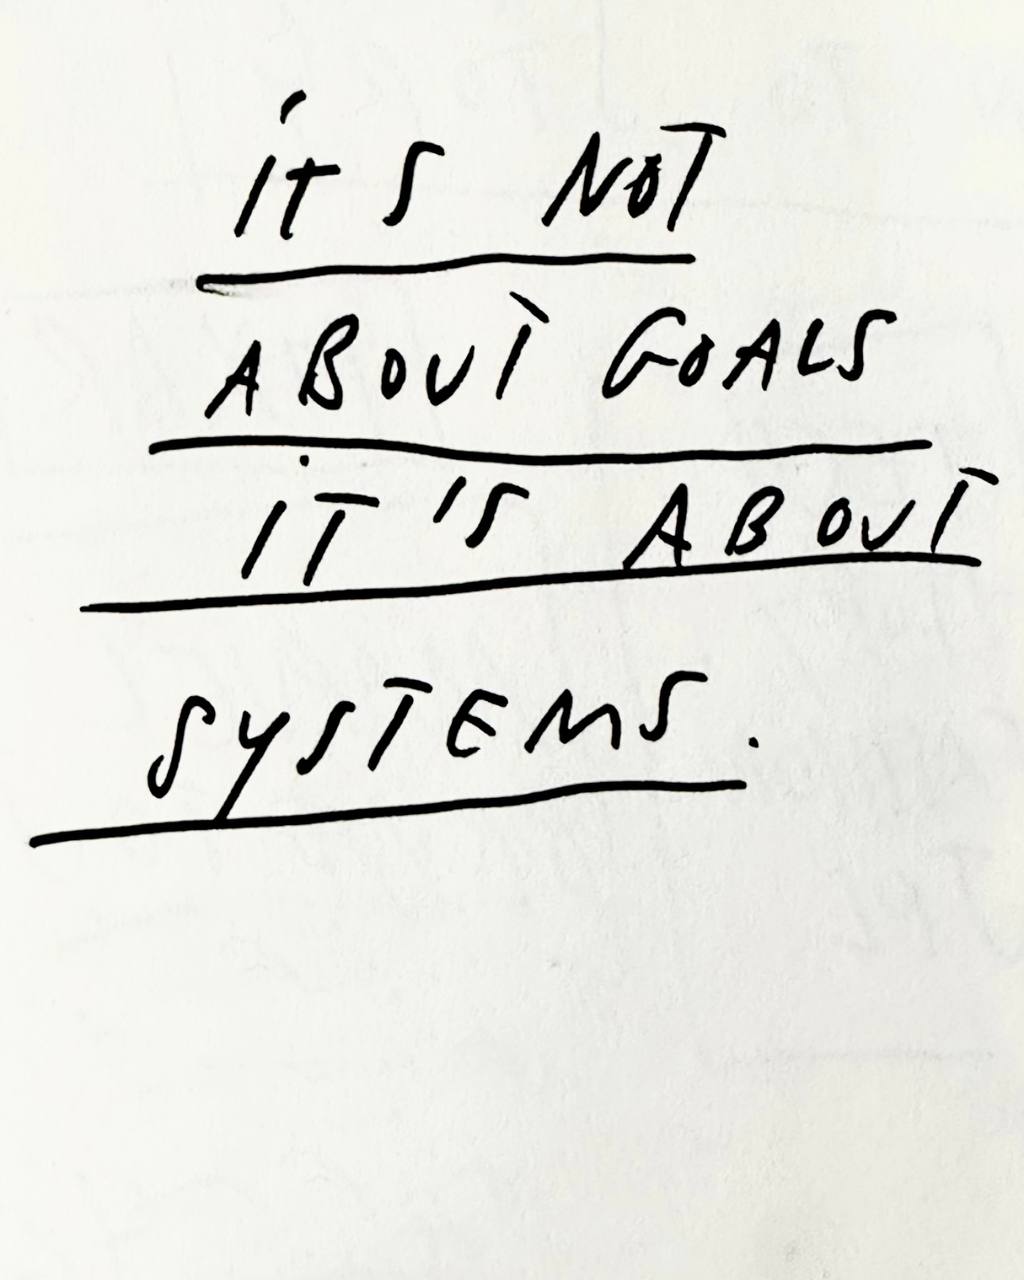 ITS NOT
ABOUT GOALS
IT'S ABOUT
SYSTEMS.